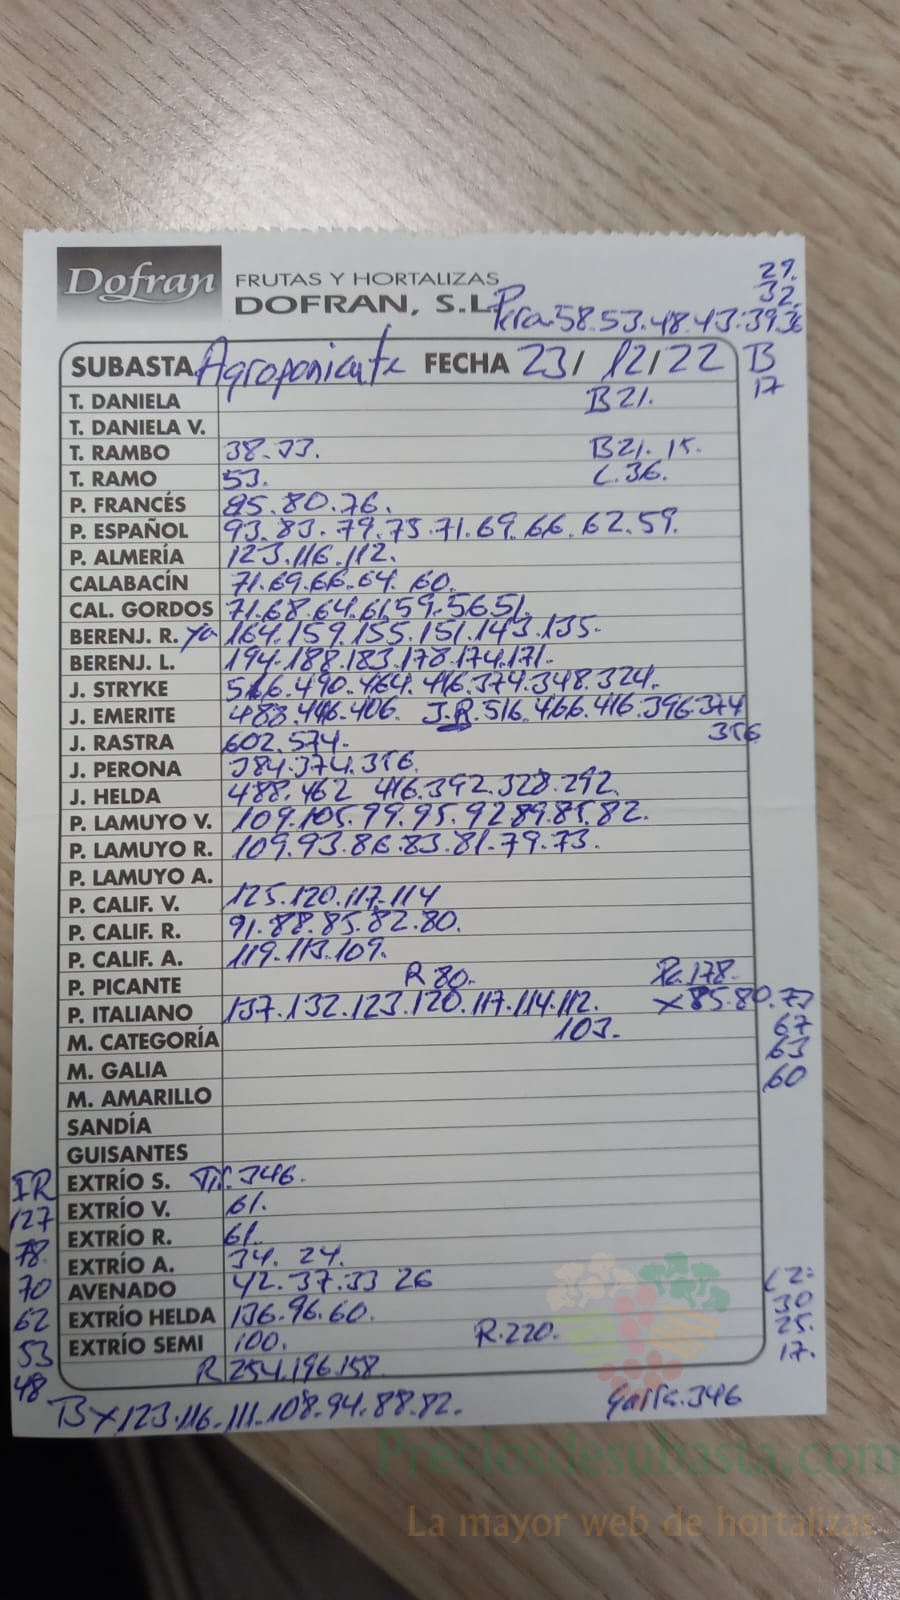 Dofran FRUTAS Y HORTALIZAS
DOFRAN, S.L.
29.
32.
Pera.58.53.48.43.39.36
SUBASTA Agroponiente FECHA 23/ 12/22 B
17
T. DANIELA B21.
T. DANIELA V.
T. RAMBO 38.33. B21. 15.
T. RAMO 53. C.36.
P. FRANCÉS 85.80.76.
P. ESPAÑOL 93.83.79.75.71.69.66.62.59.
P. ALMERÍA 123.116.112.
CALABACÍN 71.69.66.64. 60.
CAL. GORDOS 71.68.64.61.59.56.51.
BERENJ. R. 164.159.155.151.143.135.
BERENJ. L. 194.188.183.178.174.171.
J. STRYKE 516.490.464.416.374.348.324.
J. EMERITE 488.446.406. J.R.516.466.416.396.374
356
J. RASTRA 602.574.
J. PERONA 384.374.356.
J. HELDA 488.462 416.392.328.292.
P. LAMUYO V. 109.105.99.95.92.89.85.82.
P. LAMUYO R. 109.93.86.83.81.79.73.
P. LAMUYO A.
P. CALIF. V. 125.120.117.114
P. CALIF. R. 91.88.85.82.80.
P. CALIF. A. 119.113.109.
P. PICANTE R 80. 178.
P. ITALIANO 137.132.123.120.117.114.112. x85.80.73
M. CATEGORÍA 103. 67
63
M. GALIA 60
M. AMARILLO
SANDÍA
GUISANTES
IR EXTRÍO S. 346.
127 EXTRÍO V. 61.
78. EXTRÍO R. 61.
EXTRÍO A. 34. 24.
70 AVENADO 42.37.33 26
62 EXTRÍO HELDA 136.96.60. 30
53 EXTRÍO SEMI 100. R.220. 25.
17.
48 R 254.196.158.
Bx123.116.111.108.94.88.82. Garra.346
Preciosdesubasta.com
La mayor web de hortalizas